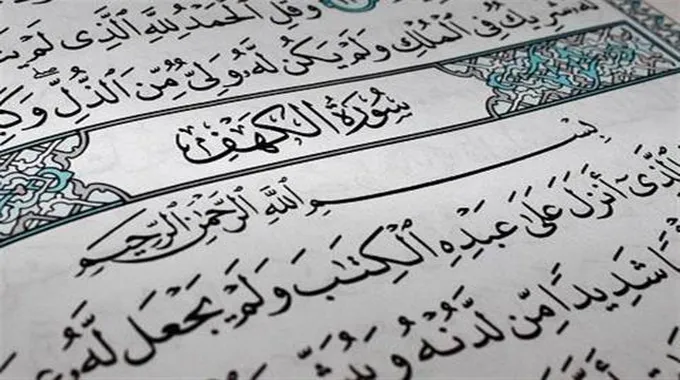 وَقُلِ ٱلْحَمْدُ لِلَّهِ ٱلَّذِى لَمْ
لَّهُۥ شَرِيكٌ فِى ٱلْمُلْكِ وَلَمْ يَكُن لَّهُۥ وَلِىٌّ مِّنَ ٱلذُّلِّ ۖ
سُورَةُ الكَهْفِ
بِسْمِ ٱللَّهِ ٱلرَّحْمَٰنِ ٱلرَّحِيمِ
ٱلَّذِىٓ أَنزَلَ عَلَىٰ عَبْدِهِ ٱلْكِتَٰبَ وَلَمْ يَجْعَل لَّهُۥ
شَدِيدًا مِّن لَّدُنْهُ